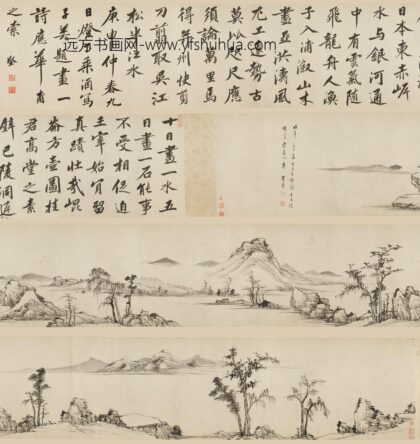 远方书画网-www.yishuhua.com
十日畫一水五
日畫一石能事
不受相促迫
王宰始肯留
真蹟壯哉崐
崙方壺圖挂
君高堂之素
壁巴陵洞庭
日本東赤岸
水与銀河通
中有雲氣隨
飛龍舟人漁
子入浦漵山木
盡亞洪濤風
尤工勢古
莫以咫尺應
須論萬里焉
得并州快剪
刀剪取吳江
松半江水
庚申仲春九
日燈下乘酒寫
子美題畫一
詩應華甫
之索